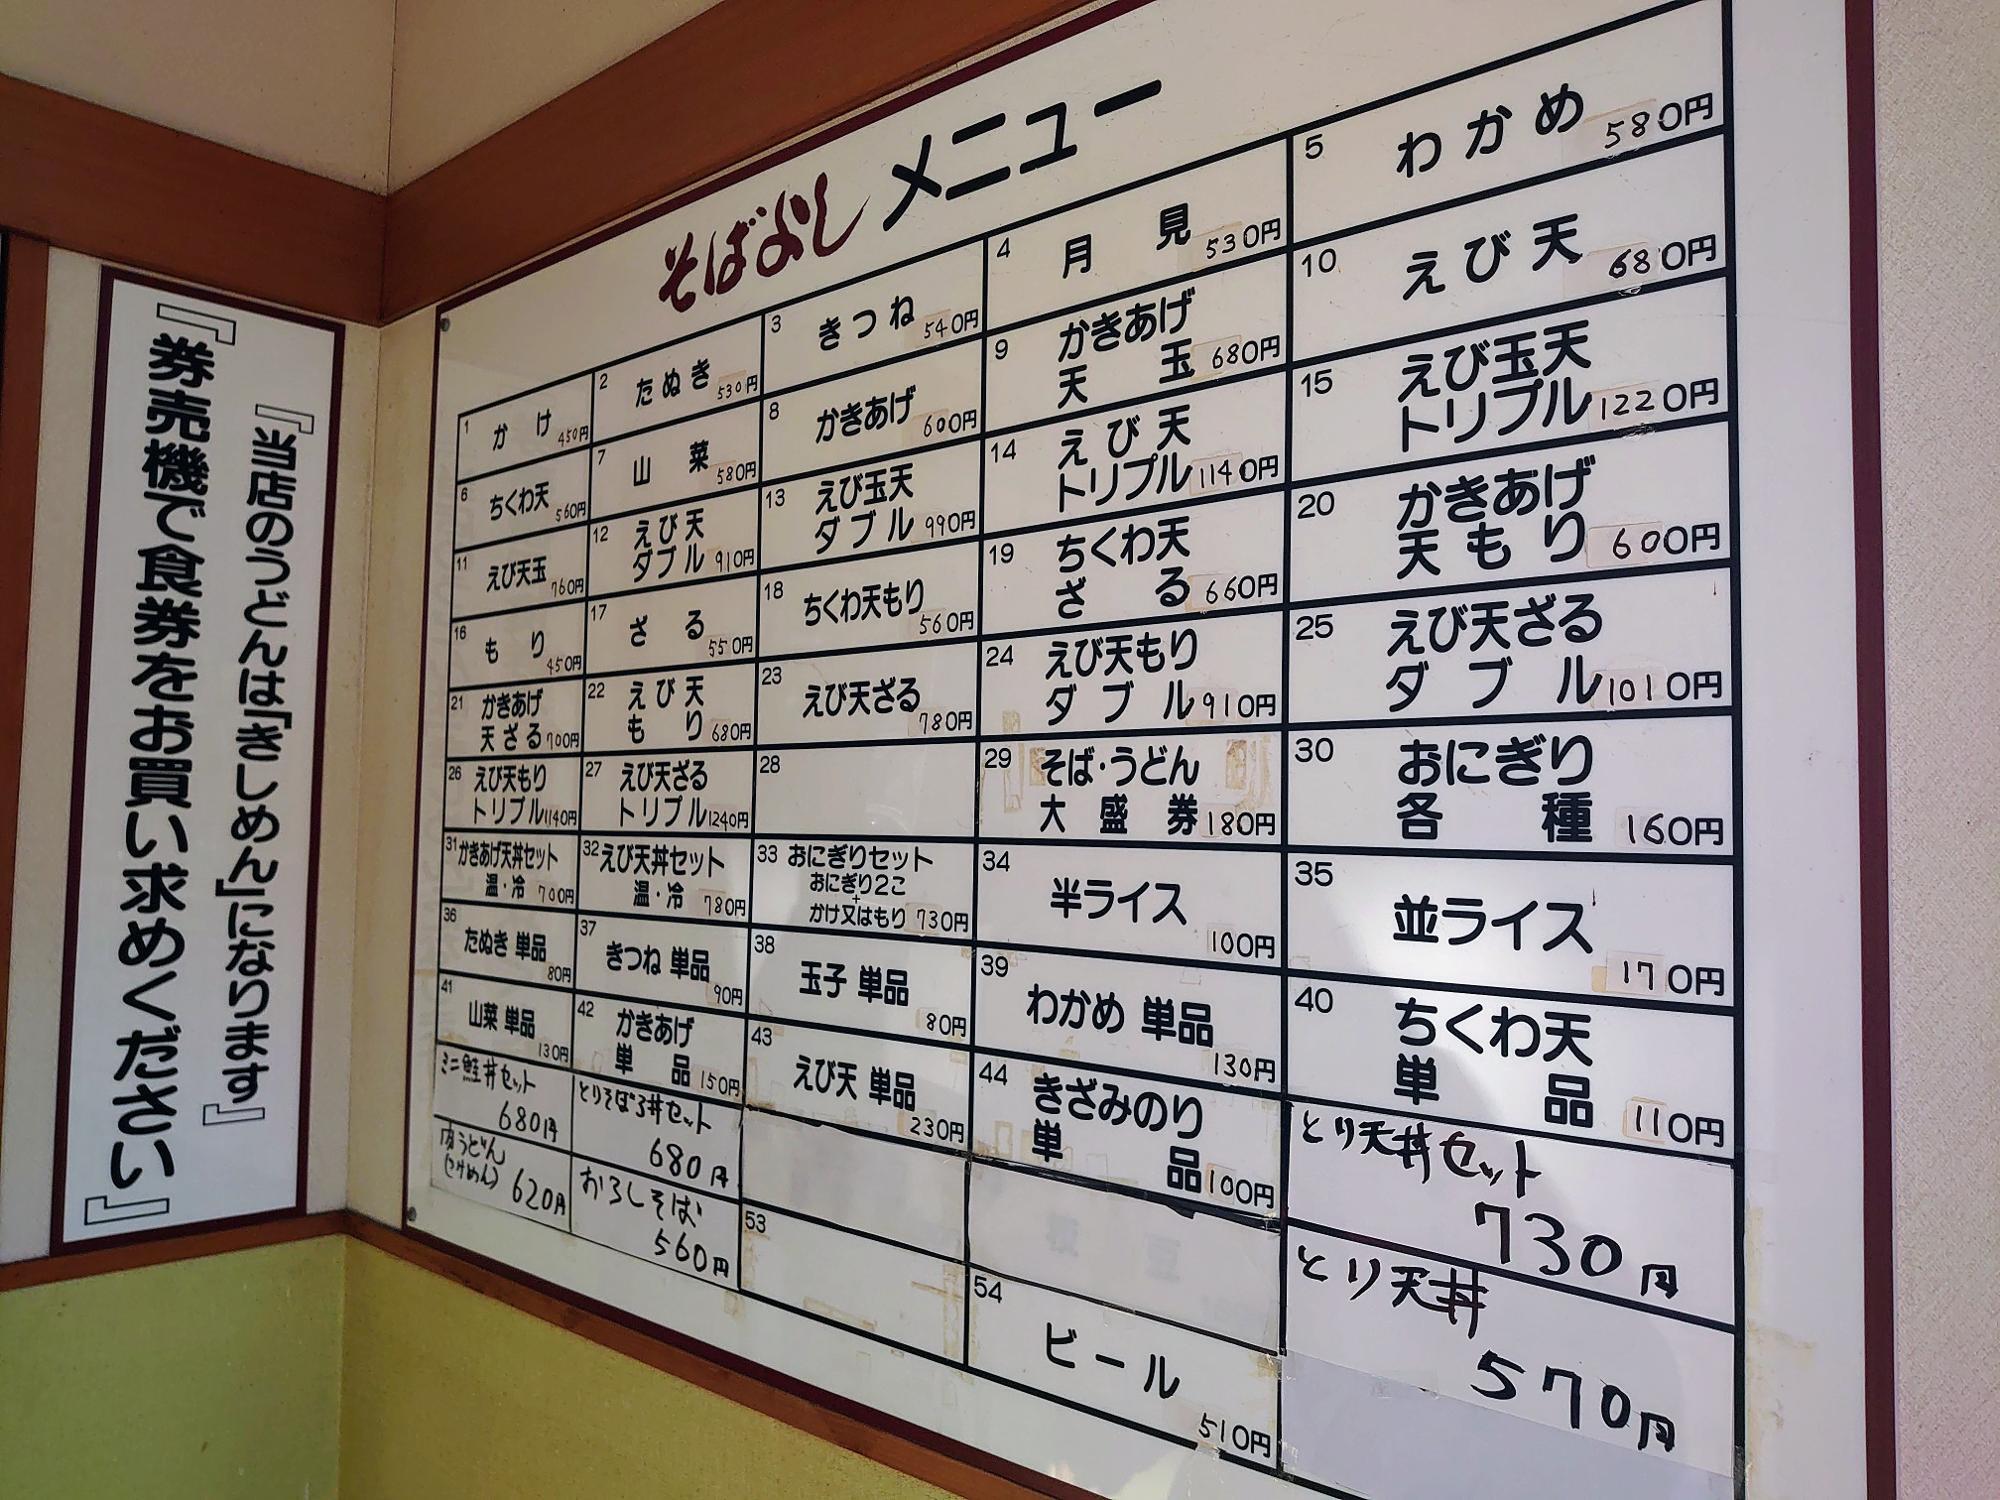 『当店のうどんは「きしめん」になります』
『券売機で食券をお買い求めください』
そばよし メニュー
1 かけ 450円
2 たぬき 530円
3 きつね 540円
4 月見 530円
5 わかめ 580円
6 ちくわ天 560円
7 山菜 580円
8 かきあげ 600円
9 かきあげ
天玉 680円
10 えび天 680円
11 えび天玉 760円
12 えび天
ダブル 910円
13 えび玉天
ダブル 990円
14 えび天
トリプル 1140円
15 えび玉天
トリプル 1220円
16 もり 450円
17 ざる 550円
18 ちくわ天もり 560円
19 ちくわ天
ざる 660円
20 かきあげ
天もり 600円
21 かきあげ
天ざる 700円
22 えび天
もり 680円
23 えび天ざる 780円
24 えび天もり
ダブル 910円
25 えび天ざる
ダブル 1010円
26 えび天もり
トリプル 1140円
27 えび天ざる
トリプル 1240円
28
29 そば・うどん
大盛券 180円
30 おにぎり
各種 160円
31 かきあげ天丼セット
温・冷 700円
32 えび天丼セット
温・冷 780円
33 おにぎりセット
おにぎり2こ
+
かけ又はもり 730円
34 半ライス 100円
35 並ライス 170円
36 たぬき 単品 80円
37 きつね 単品 90円
38 玉子 単品 80円
39 わかめ 単品 130円
40 ちくわ天
単品 110円
41 山菜 単品 130円
42 かきあげ
単品 150円
43 えび天 単品 230円
44 きざみのり
単品 100円
ミニ鮭丼セット
680円
とりそぼろ丼セット
680円
とり天丼セット
730円
肉うどん
620円
おろしそば
560円
53
54 ビール 510円
とり天丼
570円